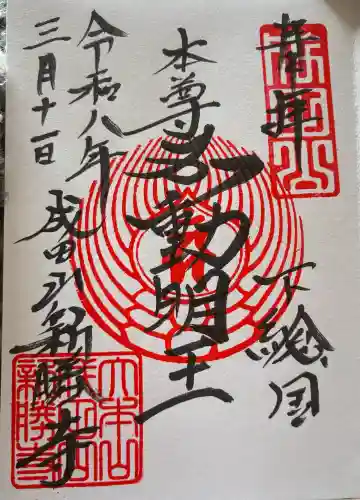 奉拝
下総国
本尊不動明王
令和八年
三月十一日
成田山新勝寺
成田山
大本山
成田山
新勝寺